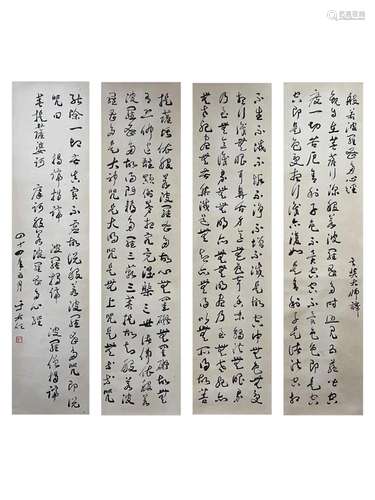 般若波羅蜜多心經
玄奘大師譯
觀自在菩薩行深般若波羅蜜多時照見五蘊皆空
度一切苦厄舍利子色不異空空不異色色即是空
空即是色受想行識亦復如是舍利子是諸法空相
不生不滅不垢不淨不增不減是故空中無色無受
想行識無眼耳鼻舌身意無色聲香味觸法無眼界
乃至無意識界無無明亦無無明盡乃至無老死亦
無老死盡無苦集滅道無智亦無得以無所得故菩
提薩埵依般若波羅蜜多故心無罣礙無罣礙故無
有恐怖遠離顛倒夢想究竟涅槃三世諸佛依般若
波羅蜜多故得阿耨多羅三藐三菩提故知般若波
羅蜜多是大神咒是大明咒是無上咒是無等等咒
能除一切苦真實不虛故說般若波羅蜜多咒即說
咒曰 揭諦揭諦 波羅揭諦 波羅僧揭諦
菩提薩婆訶 摩訶般若波羅蜜多心經
四十四年 月 于右任